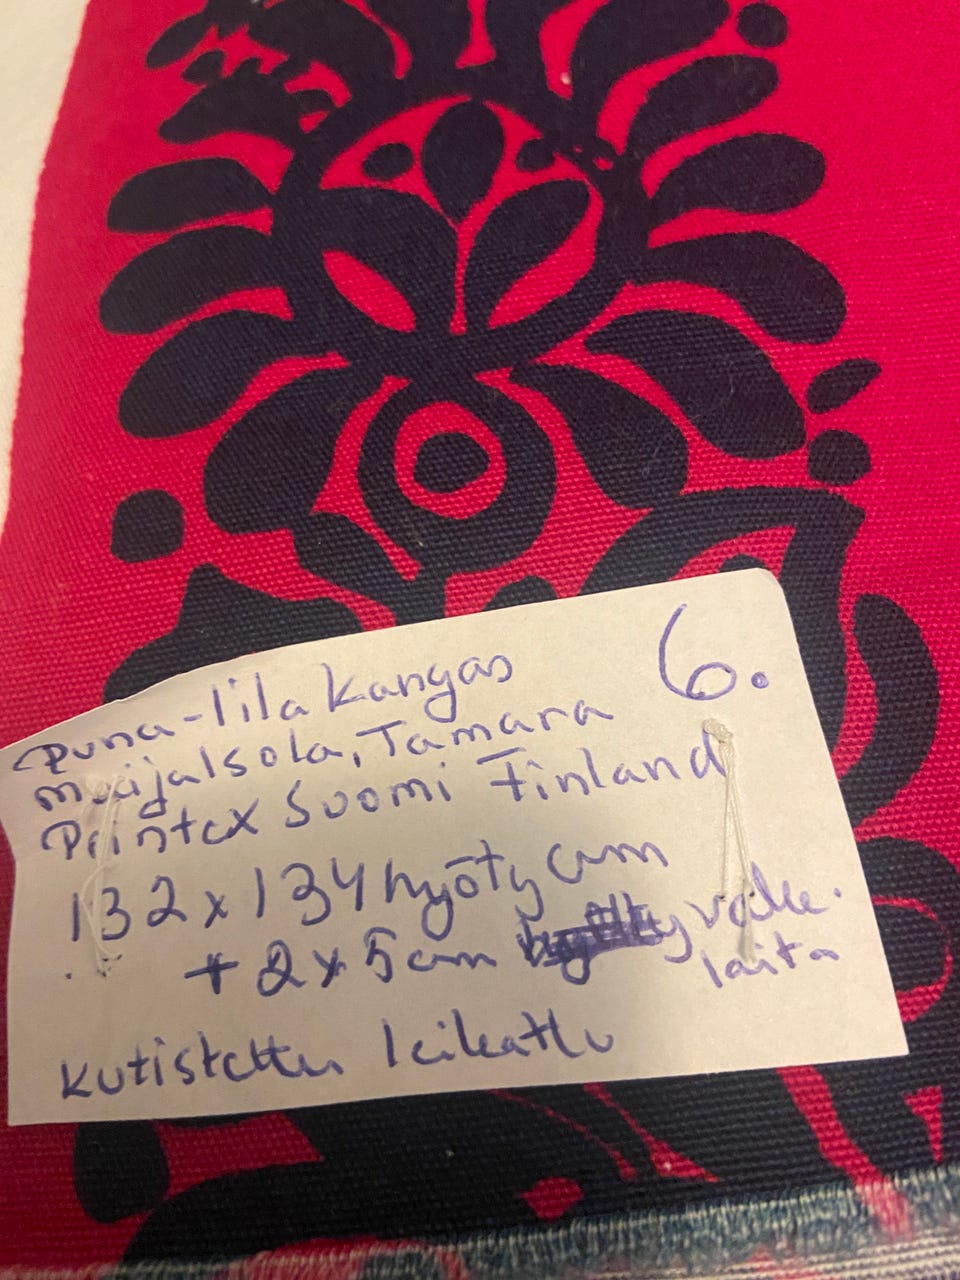 6.
Puna-lila kangas
Maija Isola, Tamara
Printex Suomi Finland
132 x 134 hyöty cm
+ 2 x 5 cm valk.
laita
kutistettu leikattu